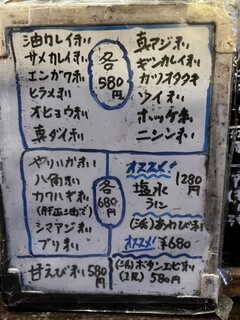 油カレイ刺
サメカレイ刺
エンガワ刺
ヒラメ刺
オヒョウ刺
真ダイ刺
各
580円
真アジ刺
ギンカレイ刺
カツオタタキ
ソイ刺
ホッケ刺
ニシン刺
やりいか刺
八角刺
カワハギ刺
シマアジ刺
ブリ刺
各
680円
オススメ!
塩水
ウニ
1280円
あわび刺
オススメ! ¥680
甘えび刺 580円
ボタンエビ刺
580円